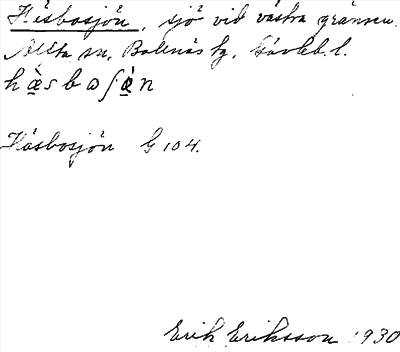 Häsbosjön, sjö vid västra gränsen.
Alfta sn, Bollnäs tg, Gävleb. l.
Häsbosjön G 104.
Erik Eriksson 1930